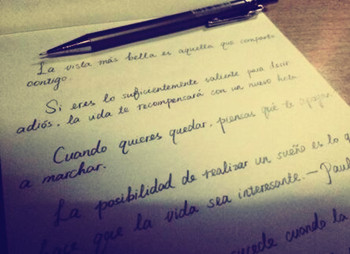 La vista más bella es aquella que comparto
contigo.
Si eres lo suficientemente valiente para decir
adiós, la vida te recompensará con un nuevo hola.
Cuando quieres quedar, piensas que te
a marchar.
La posibilidad de realizar un sueño es lo q
hace que la vida sea interesante. – Paul
sucede cuando la